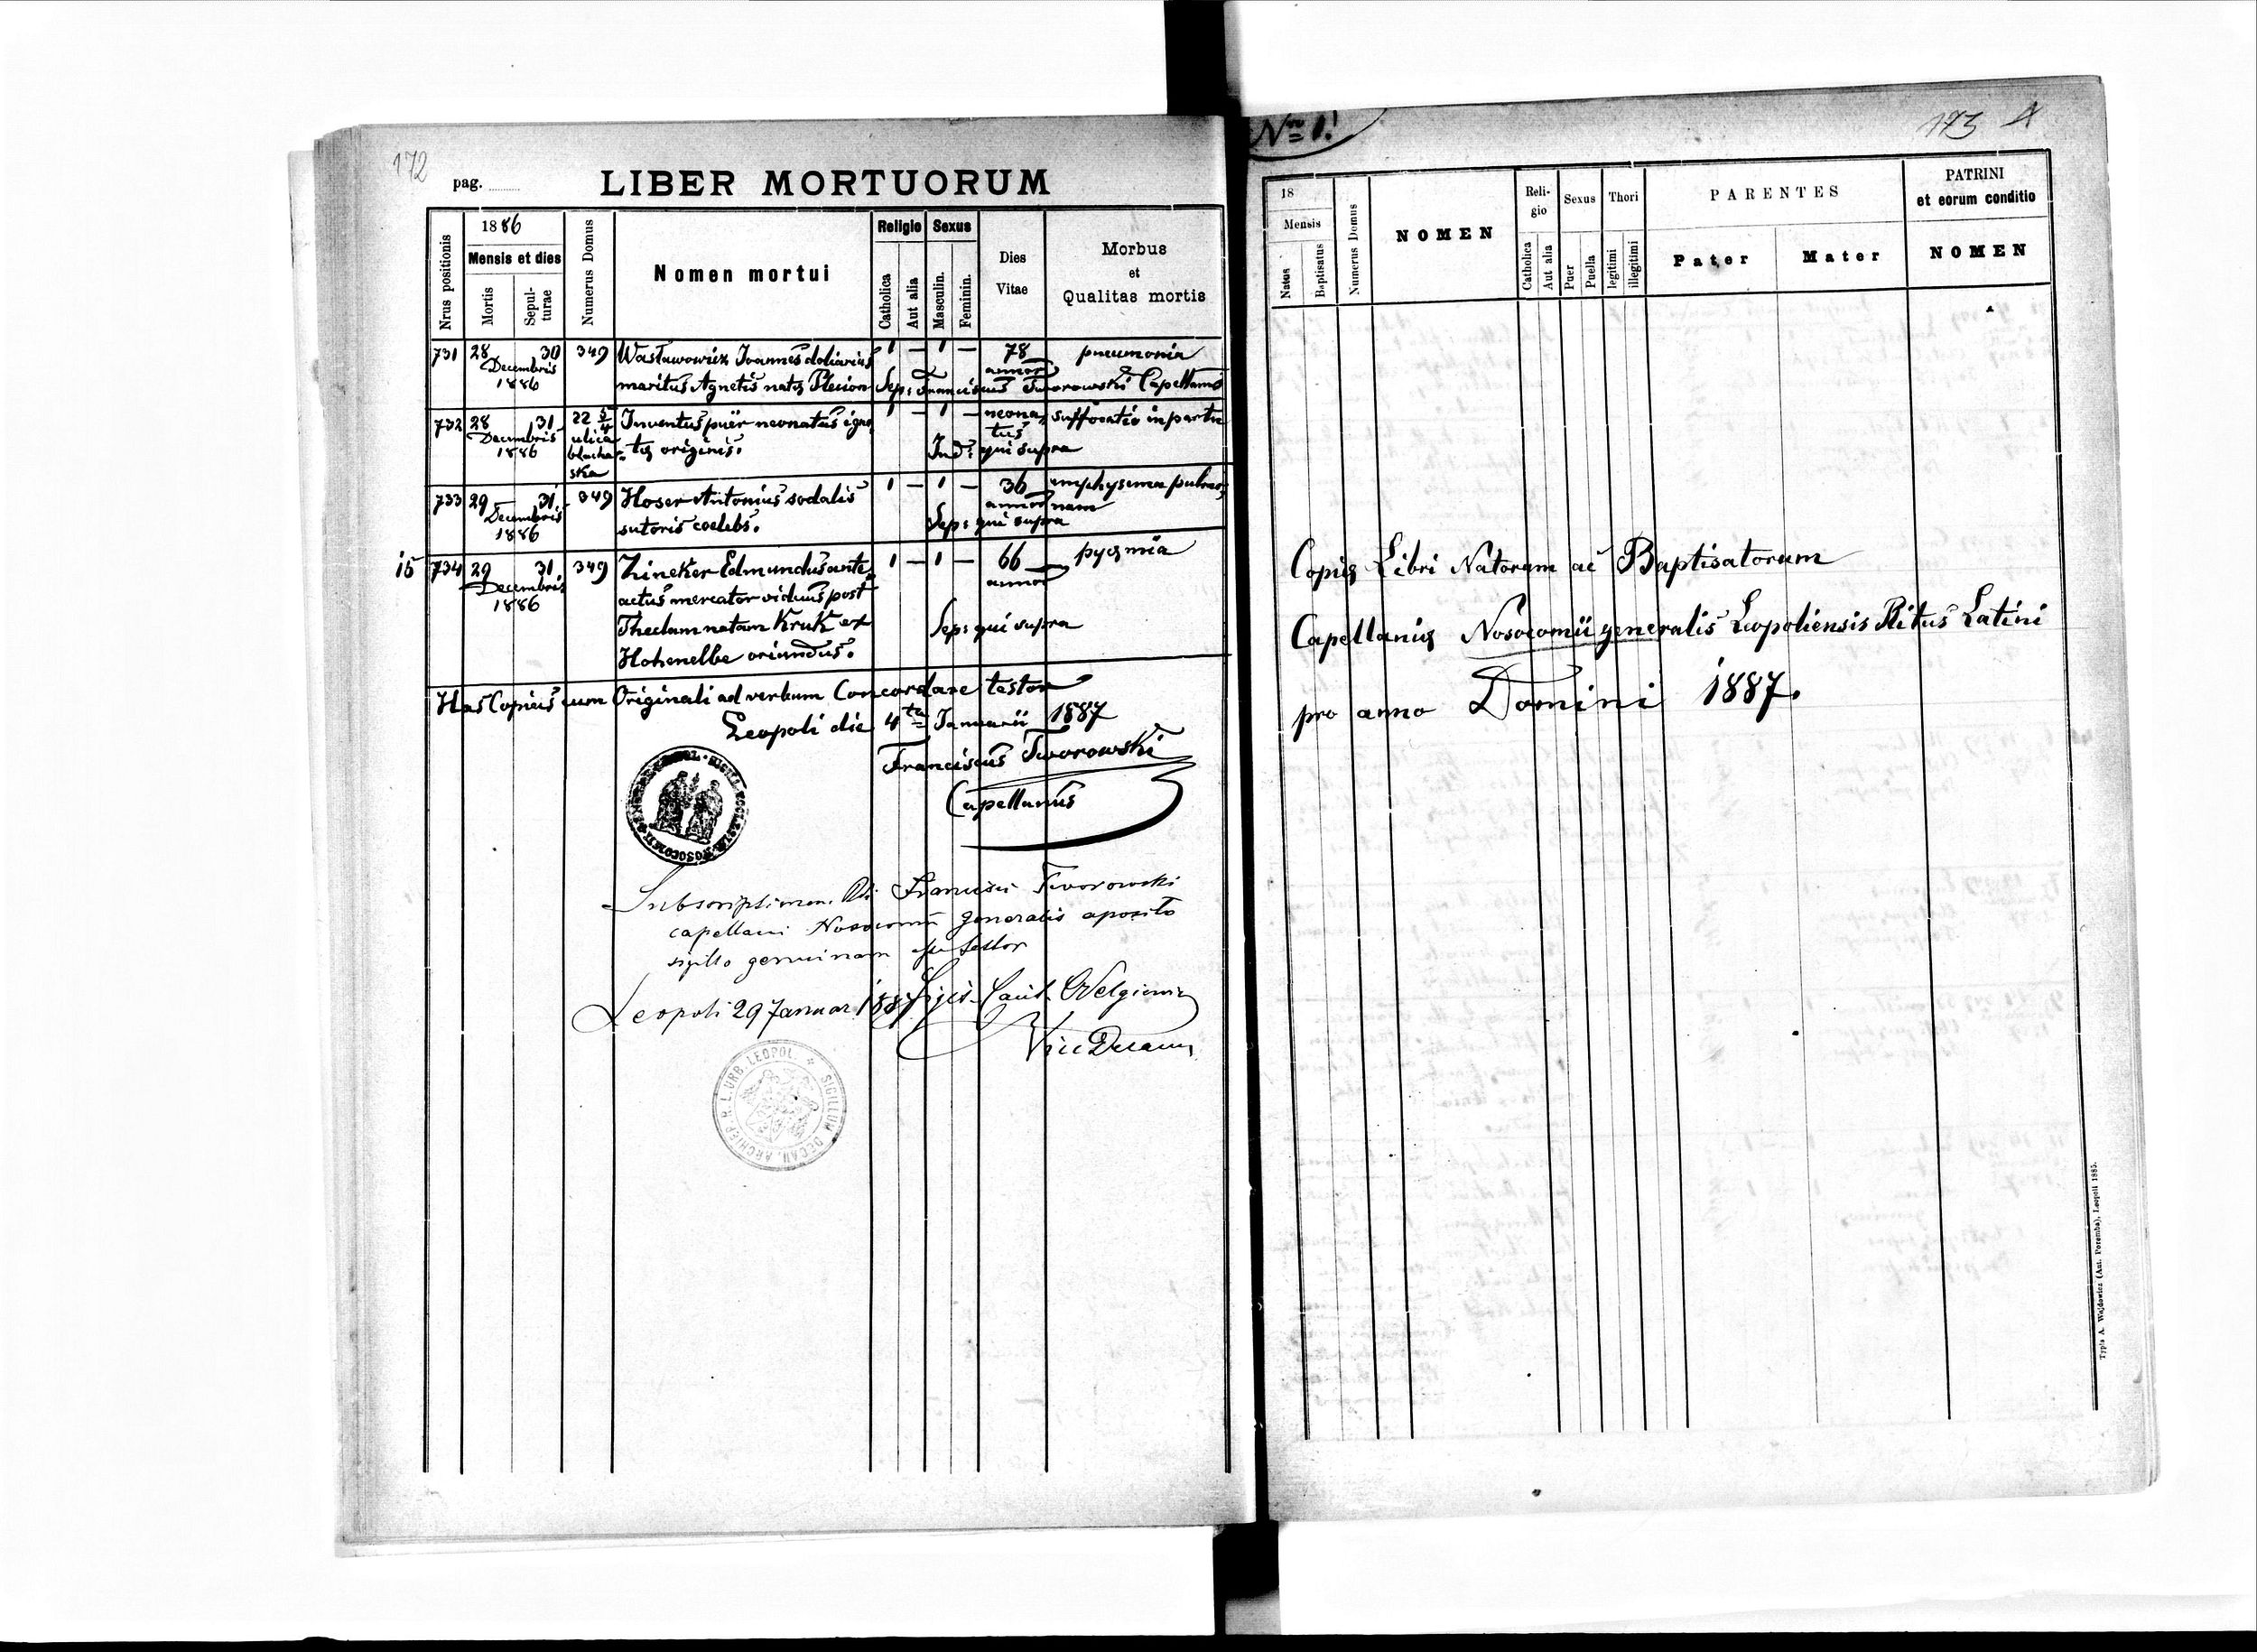 172
pag.
LIBER MORTUORUM
Nrus positionis
1886
Mensis et dies
Mortis
Sepulturae
Numerus Domus
Nomen mortui
Religio
Catholica
Aut alia
Sexus
Masculin.
Feminin.
Dies
Vitae
Morbus
et
Qualitas mortis
731 28 30 349 Wasławowicz Joannes doliarius 1 — 1 — 78 pneumonia
Decembris annor
1886 maritus Agnetis natae Sep: Franciscus Tworowski Capellanus
732 28 31 22 5/4 Inventus puer neonatus igno 1 — 1 — neona suffocatio in partu
Decembris ulica tae originis. tus
1886 blacha Ind: qui supra
ska
733 29 31 349 Hoser Antonius sodalis 1 — 1 — 36 emphysema pulmo
Decembris sutoris coelebs. annor num
1886 Sep: qui supra
15 734 29 31 349 Zineker Edmundus ante 1 — 1 — 66 pyaemia
Decembris actus mercator viduus post annor
1886 Theclam natam Kruk ex Sep: qui supra
Hohenelbe oriundus.
Has Copias cum Originali ad verbum Concordare testor
Leopoli die 4ta Januarii 1887
Franciscus Tworowski
Capellanus
Subscriptionem Francisci Tworowski
capellani Nosocomii generalis aposito
sigillo genuinam esse testor
Leopoli 29 Januar 1887
Vice Decanus
SIGILLUM DECAN. ARCHIEP. R. L. URB. LEOPOL.
Nro 1!
173 A
18
Mensis
Natus
Baptisatus
Numerus Domus
NOMEN
Reli-
gio
Catholica
Aut alia
Sexus
Puer
Puella
Thori
legitimi
illegitimi
PARENTES
Pater
Mater
PATRINI
et eorum conditio
NOMEN
Copia Libri Natorum ac Baptisatorum
Capellania Nosocomii generalis Leopoliensis Ritus Latini
pro anno Domini 1887.
Typis A. Wajdowicz (Ant. Poremba), Leopoli 1885.